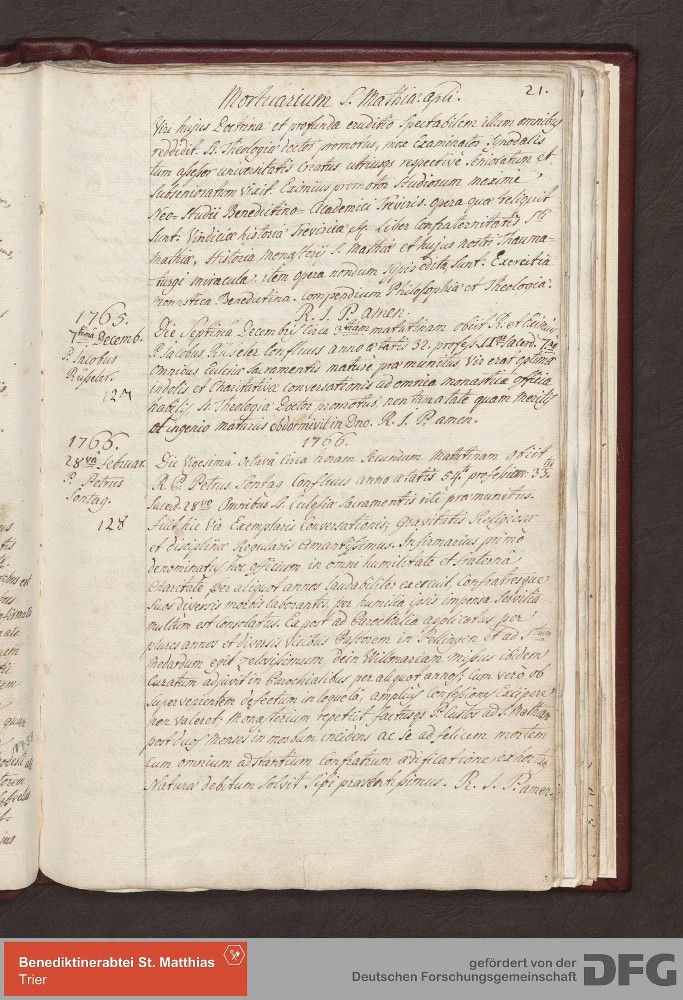 Mortuarium S. Mathiæ apli.
21.
Viri hujus Doctrina et profunda eruditio Spectabilem illum omnibus
reddidit. SS. Theologiæ doctor promotus, mox Examinator Synodalis
tum assessor universitatis Creatus utriusque respective Senioratum et
Subsenioratum vixit. Eximius promotor Studiorum maxime
Neo-Studii Benedictino-Academici Treviris. opera quæ reliquit
sunt: Vindiciæ historiæ Treviricæ Liber Confraternitatis Sti
Mathiæ, Historia Monasterij S. Mathiæ et hujus nostri Thauma-
turgi miracula. item opera nondum typis edita sunt: Exercitia
monastica Benedictina. Compendium Philosophiæ et Theologiæ.
R. I. P. amen.
1765.
7tima Decemb.
P. Jacobus
Rüsseler.
127
Die Septima Decembris Circa 3tiam matutinam obiit R. et Eximius
P. Jacobus Rüseler Confluus anno ætatis 32. profess. Sacerd. 7mo
Omnibus Ecclesiæ Sacramentis mature præmunitus Vir erat optimæ
indolis et Charitativæ Conversationis ad omnia monastica officia
habilis, SS. Theologiæ Doctor promotus non tam ætate quam meritis
et ingenio maturus obdormivit in Dno. R. I. P. amen.
1766.
1766.
28va Februar.
P. Petrus
Sontag.
128
Die Vigesima octava Circa nonam Secundum Matutinam obiit
R. P. Petrus Sontag Confluus anno ætatis 54. profession. 33.
Sacerd. 28vo Omnibus SS. Ecclesiæ Sacramentis rite præmunitus.
Fuit hic Vir Exemplaris Conversationis, Gravitatis Religiosæ
et disciplinæ Regularis amantissimus. Infirmarius primo
denominatus hoc officium in omni humilitate et fraterna
Charitate per aliquot annos laudabiliter exercuit, Confratresque
suos diversis morbis laborantes, per humilia ipsis impensa Solvitia
multum est consolatus. Ex post ad Parochialia applicatus per
plures annos et diversis Vicibus Pastorem in et ad Stum
Medardum egit zelosissimum, dein Villmariam missus ibidem
Curatum adjuvit in Parochialibus per aliquot annos, cum vero ob
supervenientem defectum in loquela, amplius Confessiones Excipere
non valeret. Monasterium repetiit, factusque P. Custos ad S. Mathiam
post duos menses in morbum incidens ac se ad felicem mortem
cum omnium adstantium Confratrum ædificatione
Naturæ debitum solvit sibi præsentissimus. R. I. P. amen.
Benediktinerabtei St. Matthias
Trier
gefördert von der
Deutschen Forschungsgemeinschaft
DFG